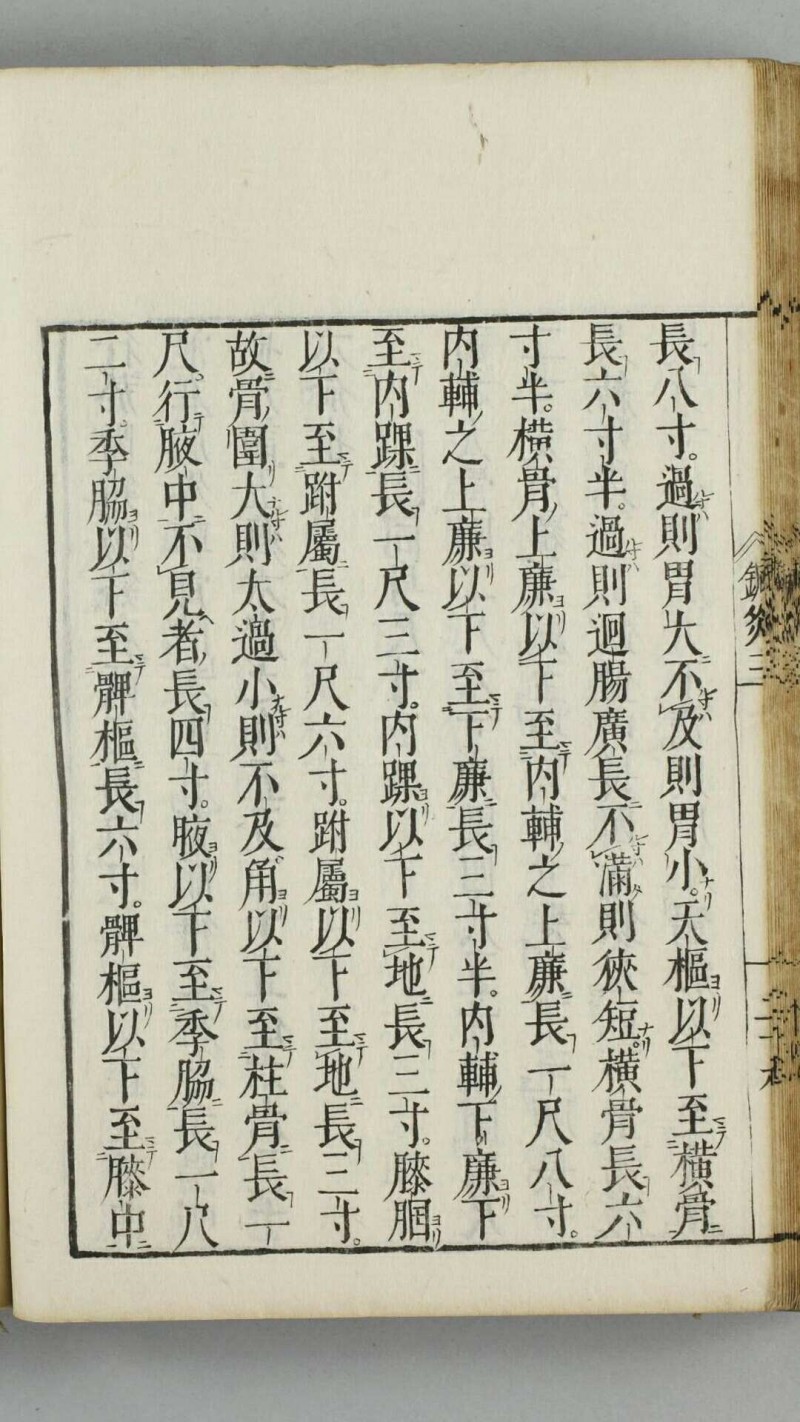 長八寸。過則胃大不及則胃小。天樞以下至横骨
長六寸半。過則迴腸廣長不滿則狹短。横骨長六
寸半。横骨上廉以下至内輔之上廉長一尺八寸。
内輔之上廉以下至下廉長三寸半。内輔下廉下
至内踝長一尺三寸。内踝以下至地長三寸。膝膕
以下至跗屬長一尺六寸。跗屬以下至地長三寸。
故骨圍大則太過小則不及角以下至柱骨長一
尺。行腋中不見者長四寸。腋以下至季脇長一尺
二寸。季脇以下至髀樞長六寸。髀樞以下至膝中